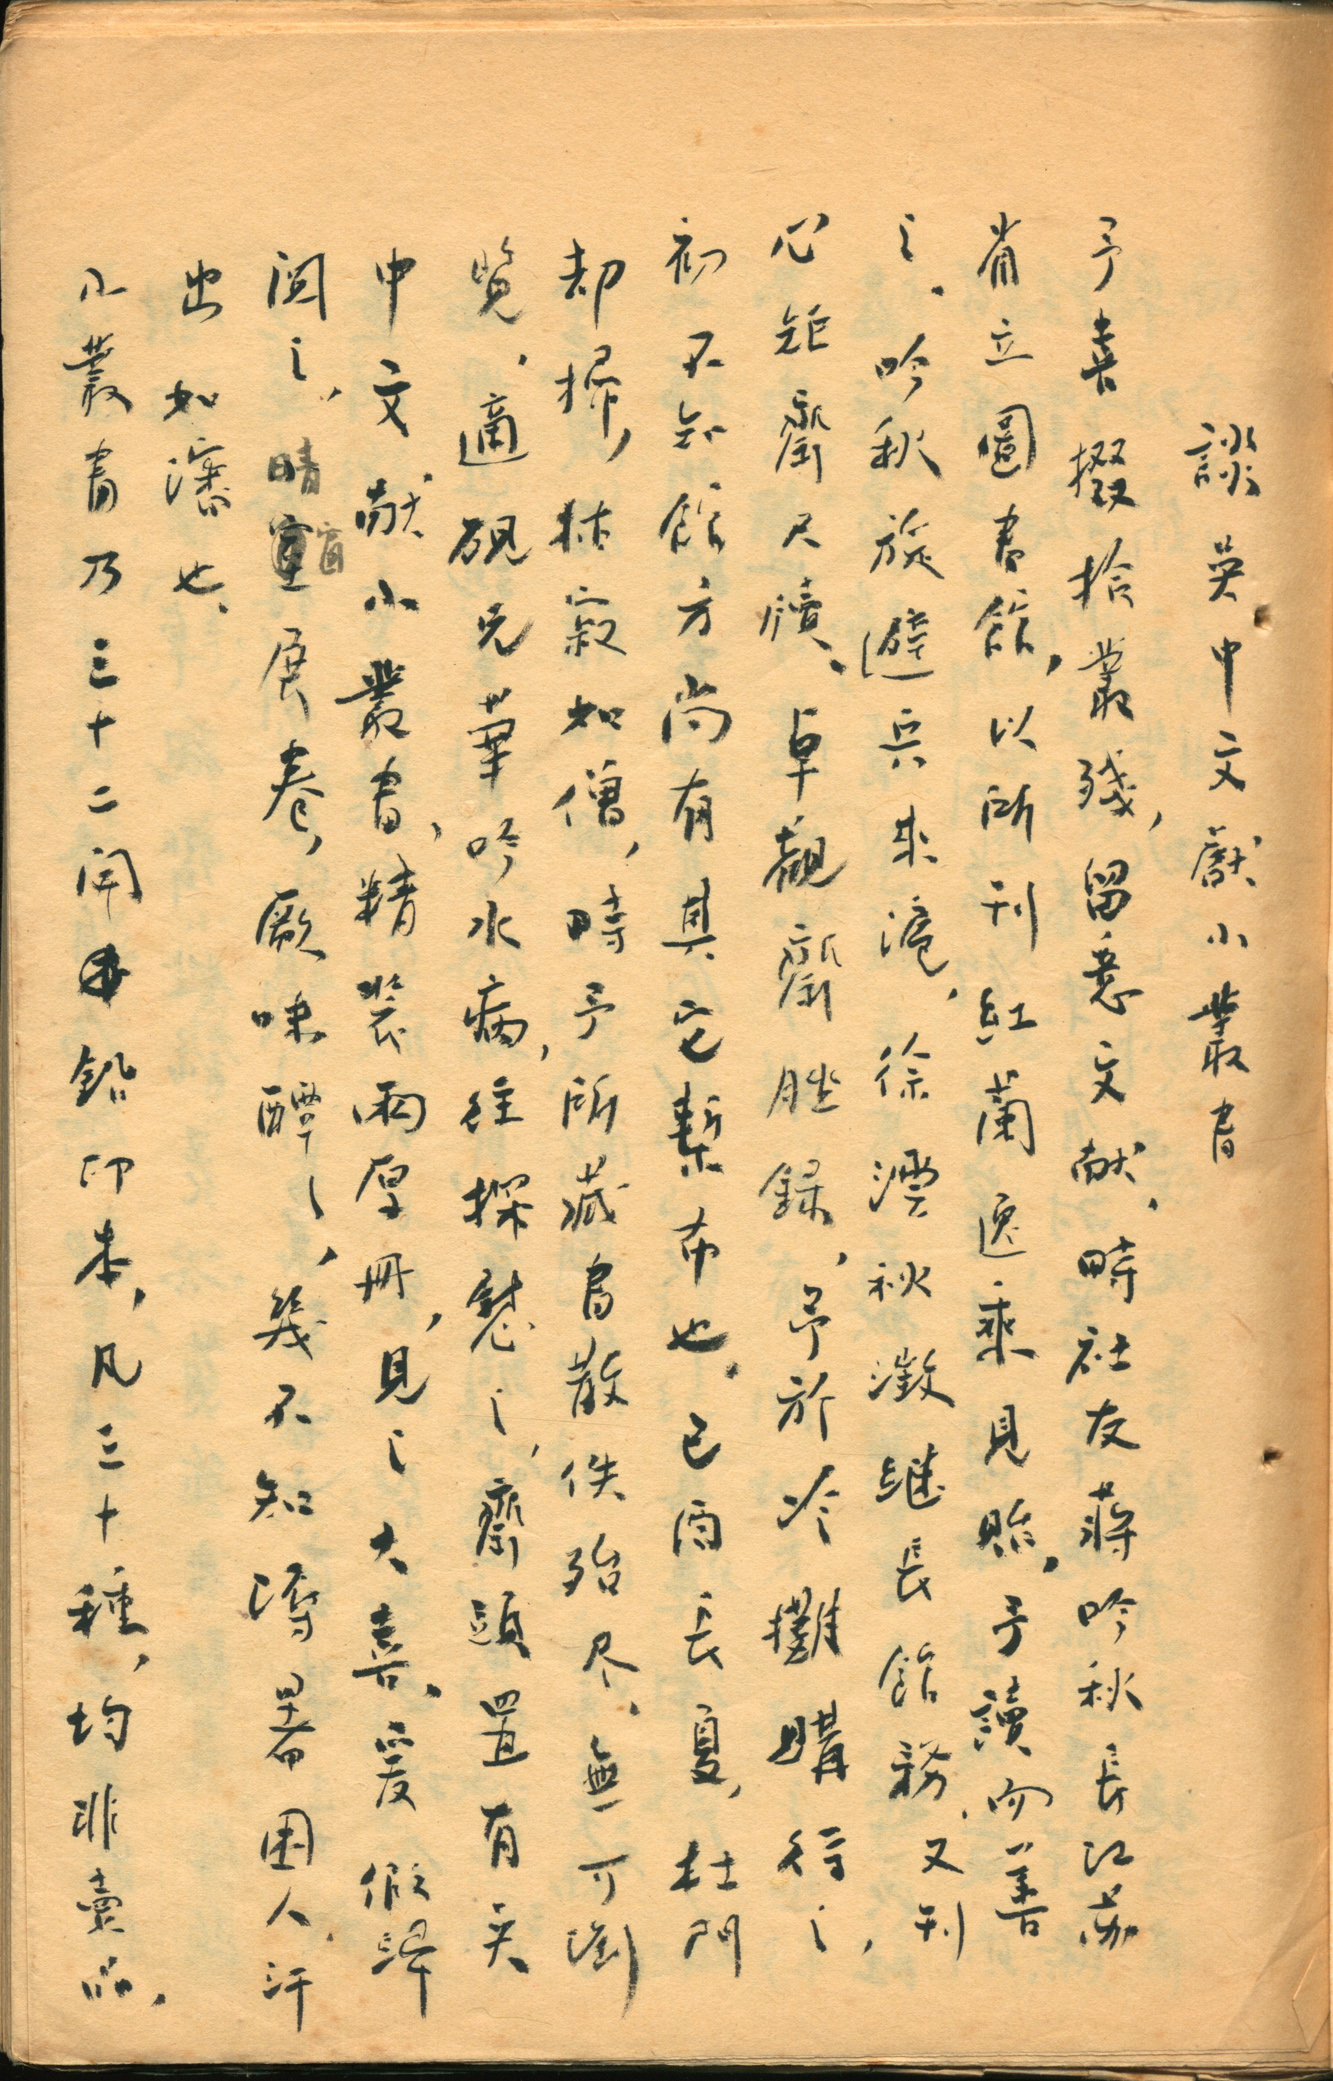 談吴中文獻小叢書
予喜掇拾叢殘,留意文献、時社友蔣吟秋長江蘇
省立圖書館,以所刊紅蘭逸乘見貽,予讀而善
之、吟秋旋避兵來滬、徐澐秋澂継長館務、又刊
心矩齋尺牘、卓觀齋脞録、予於冷攤購得之,
初不知館方尚有其它槧布也、己酉長夏,杜門
却掃,枯寂如僧,時予所藏書散佚殆尽、無可瀏
覽、適硯兄華吟水病,往探慰之,齋頭置有吴
中文献小叢書,精裝兩厚冊,見之大喜、爰假歸
閱之,晴窗展卷,厥味醰〻,幾不知溽暑困人、汗
出如瀋也、
小叢書乃三十二開鉛印本,凡三十種,均非賣品,